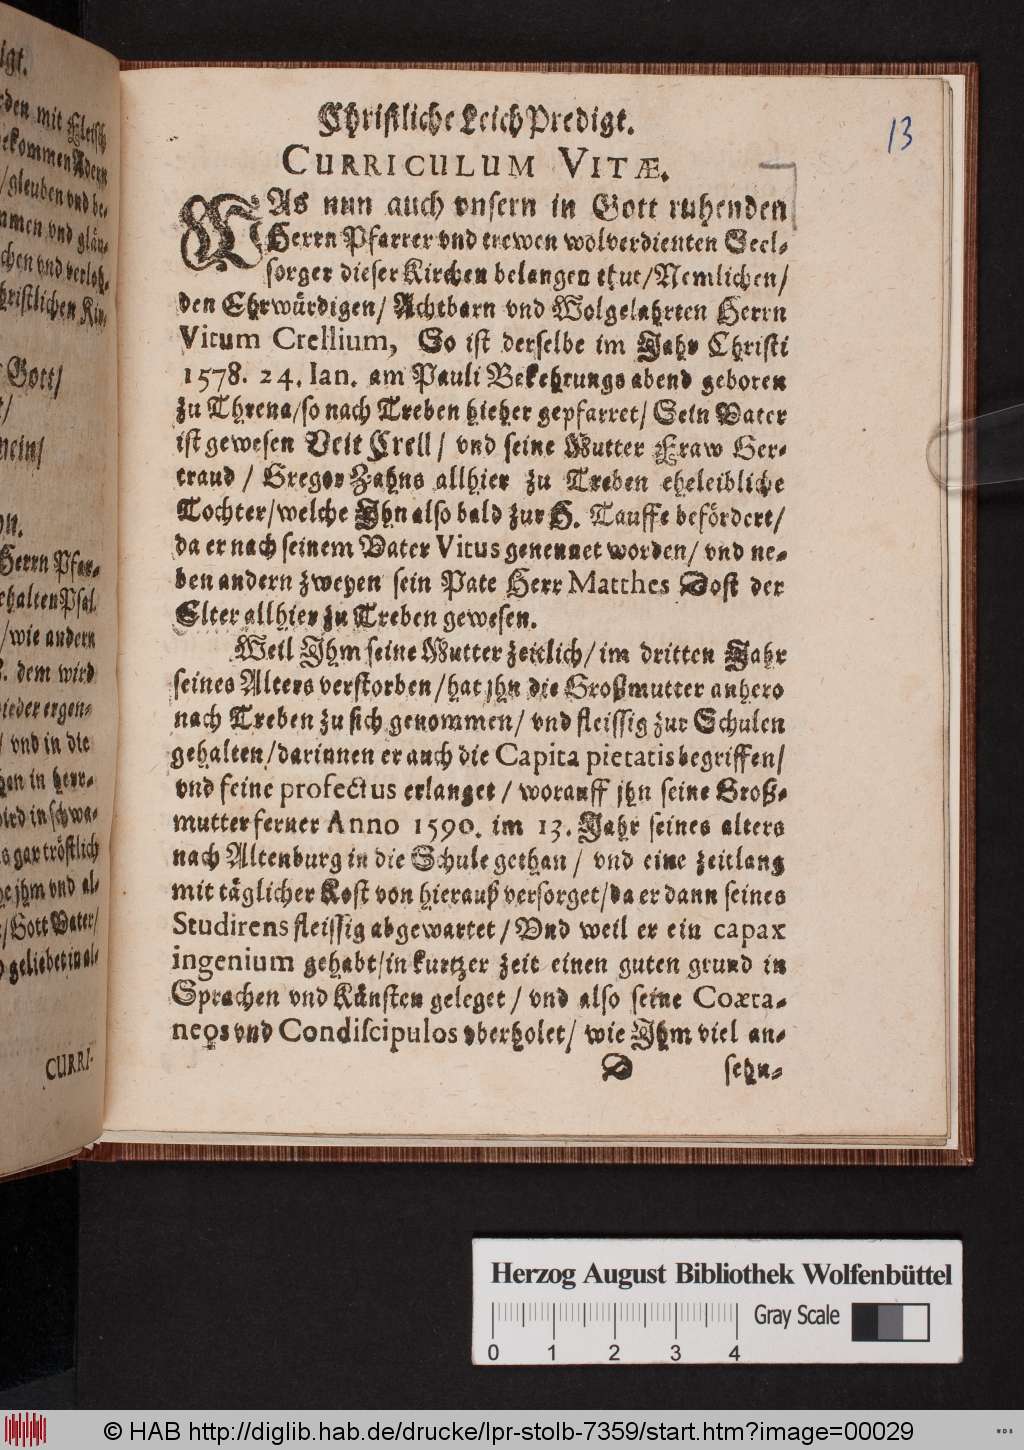 igt.
rden mit Fleisch
bekommen Adern
/gleuben vnd be-
mmen vnd gläu-
chen vnd verloh-
hristlichen Kir-
Gott/
nein/
on.
Herrn Pfar-
ehalten Psal.
/wie andern
dem wird
wieder ergen-
/ vnd in die
hen in herr-
wird in schwa-
s gar tröstlich
he jhm vnd al-
/Gott Vater/
geliebet in al-
CURRI-
Christliche LeichPredigt.
CURRICULUM VITÆ.
WAs nun auch vnsern in Gott ruhenden
Herrn Pfarrer vnd trewen wolverdienten Seel-
sorger dieser Kirchen belangen thut/Nemlichen/
den Ehrwürdigen/ Achtbarn vnd Wolgelahrten Herrn
Vitum Crellium, So ist derselbe im Jahr Christi
1578. 24. Ian. am Pauli Bekehrungs abend geboren
zu Threna/so nach Treben hieher gepfarret/ Sein Vater
ist gewesen Veit Crell/ vnd seine Mutter Fraw Ger-
traud / Gregor Zahns allhier zu Treben eheleibliche
Tochter/welche Ihn also bald zur H. Tauffe befördert/
da er nach seinem Vater Vitus genennet worden/ vnd ne-
ben andern zweyen sein Pate Herr Matthes Dost der
Elter allhier zu Treben gewesen.
Weil Ihm seine Mutter zeitlich/im dritten Jahr
seines Alters verstorben/hat jhn die Großmutter anhero
nach Treben zu sich genommen/ vnd fleissig zur Schulen
gehalten/darinnen er auch die Capita pietatis begriffen/
vnd feine profectus erlanget / worauff jhn seine Groß-
mutter ferner Anno 1590. im 13. Jahr seines alters
nach Altenburg in die Schule gethan / vnd eine zeitlang
mit täglicher Kost von hierauß versorget/da er dann seines
Studirens fleissig abgewartet / Vnd weil er ein capax
ingenium gehabt/in kurtzer zeit einen guten grund in
Sprachen vnd Künsten geleget / vnd also seine Coæta-
neos vnd Condiscipulos vberholet/ wie Ihm viel an-
D sehn-
13
Herzog August Bibliothek Wolfenbüttel
Gray Scale
0 1 2 3 4
© HAB http://diglib.hab.de/drucke/lpr-stolb-7359/start.htm?image=00029